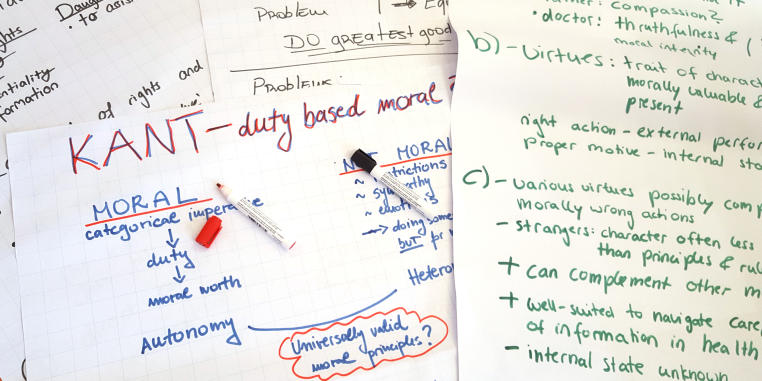 to assis
Problem
DO greatest good
Problem:
of rights and
KANT - duty based moral
MORAL
categorical imperative
↓
duty
↓
moral worth
Autonomy
MORAL
~ sympathy
→ doing some
BUT for
Universally valid
moral principles?
compassion?
• doctor: truthfulness & (
moral integrity
b) - Virtues: trait of charact
morally valuable &
present
right action - external perfor
proper motive - internal sta
c) - various virtues possibly comp
morally wrong actions
- strangers: character often less
than principles & rul
+ can complement other m
+ well-suited to navigate care,
of information in health
- internal state unknown